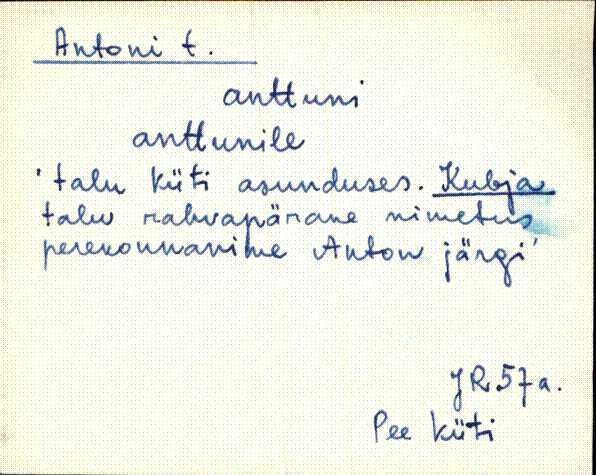 Antoni t.
anttuni
anttunile
'talu Küti asunduses. Kubja
talu rahvapärane nimetus
perekonnanime Anton järgi'
JR 57 a.
Pee Küti